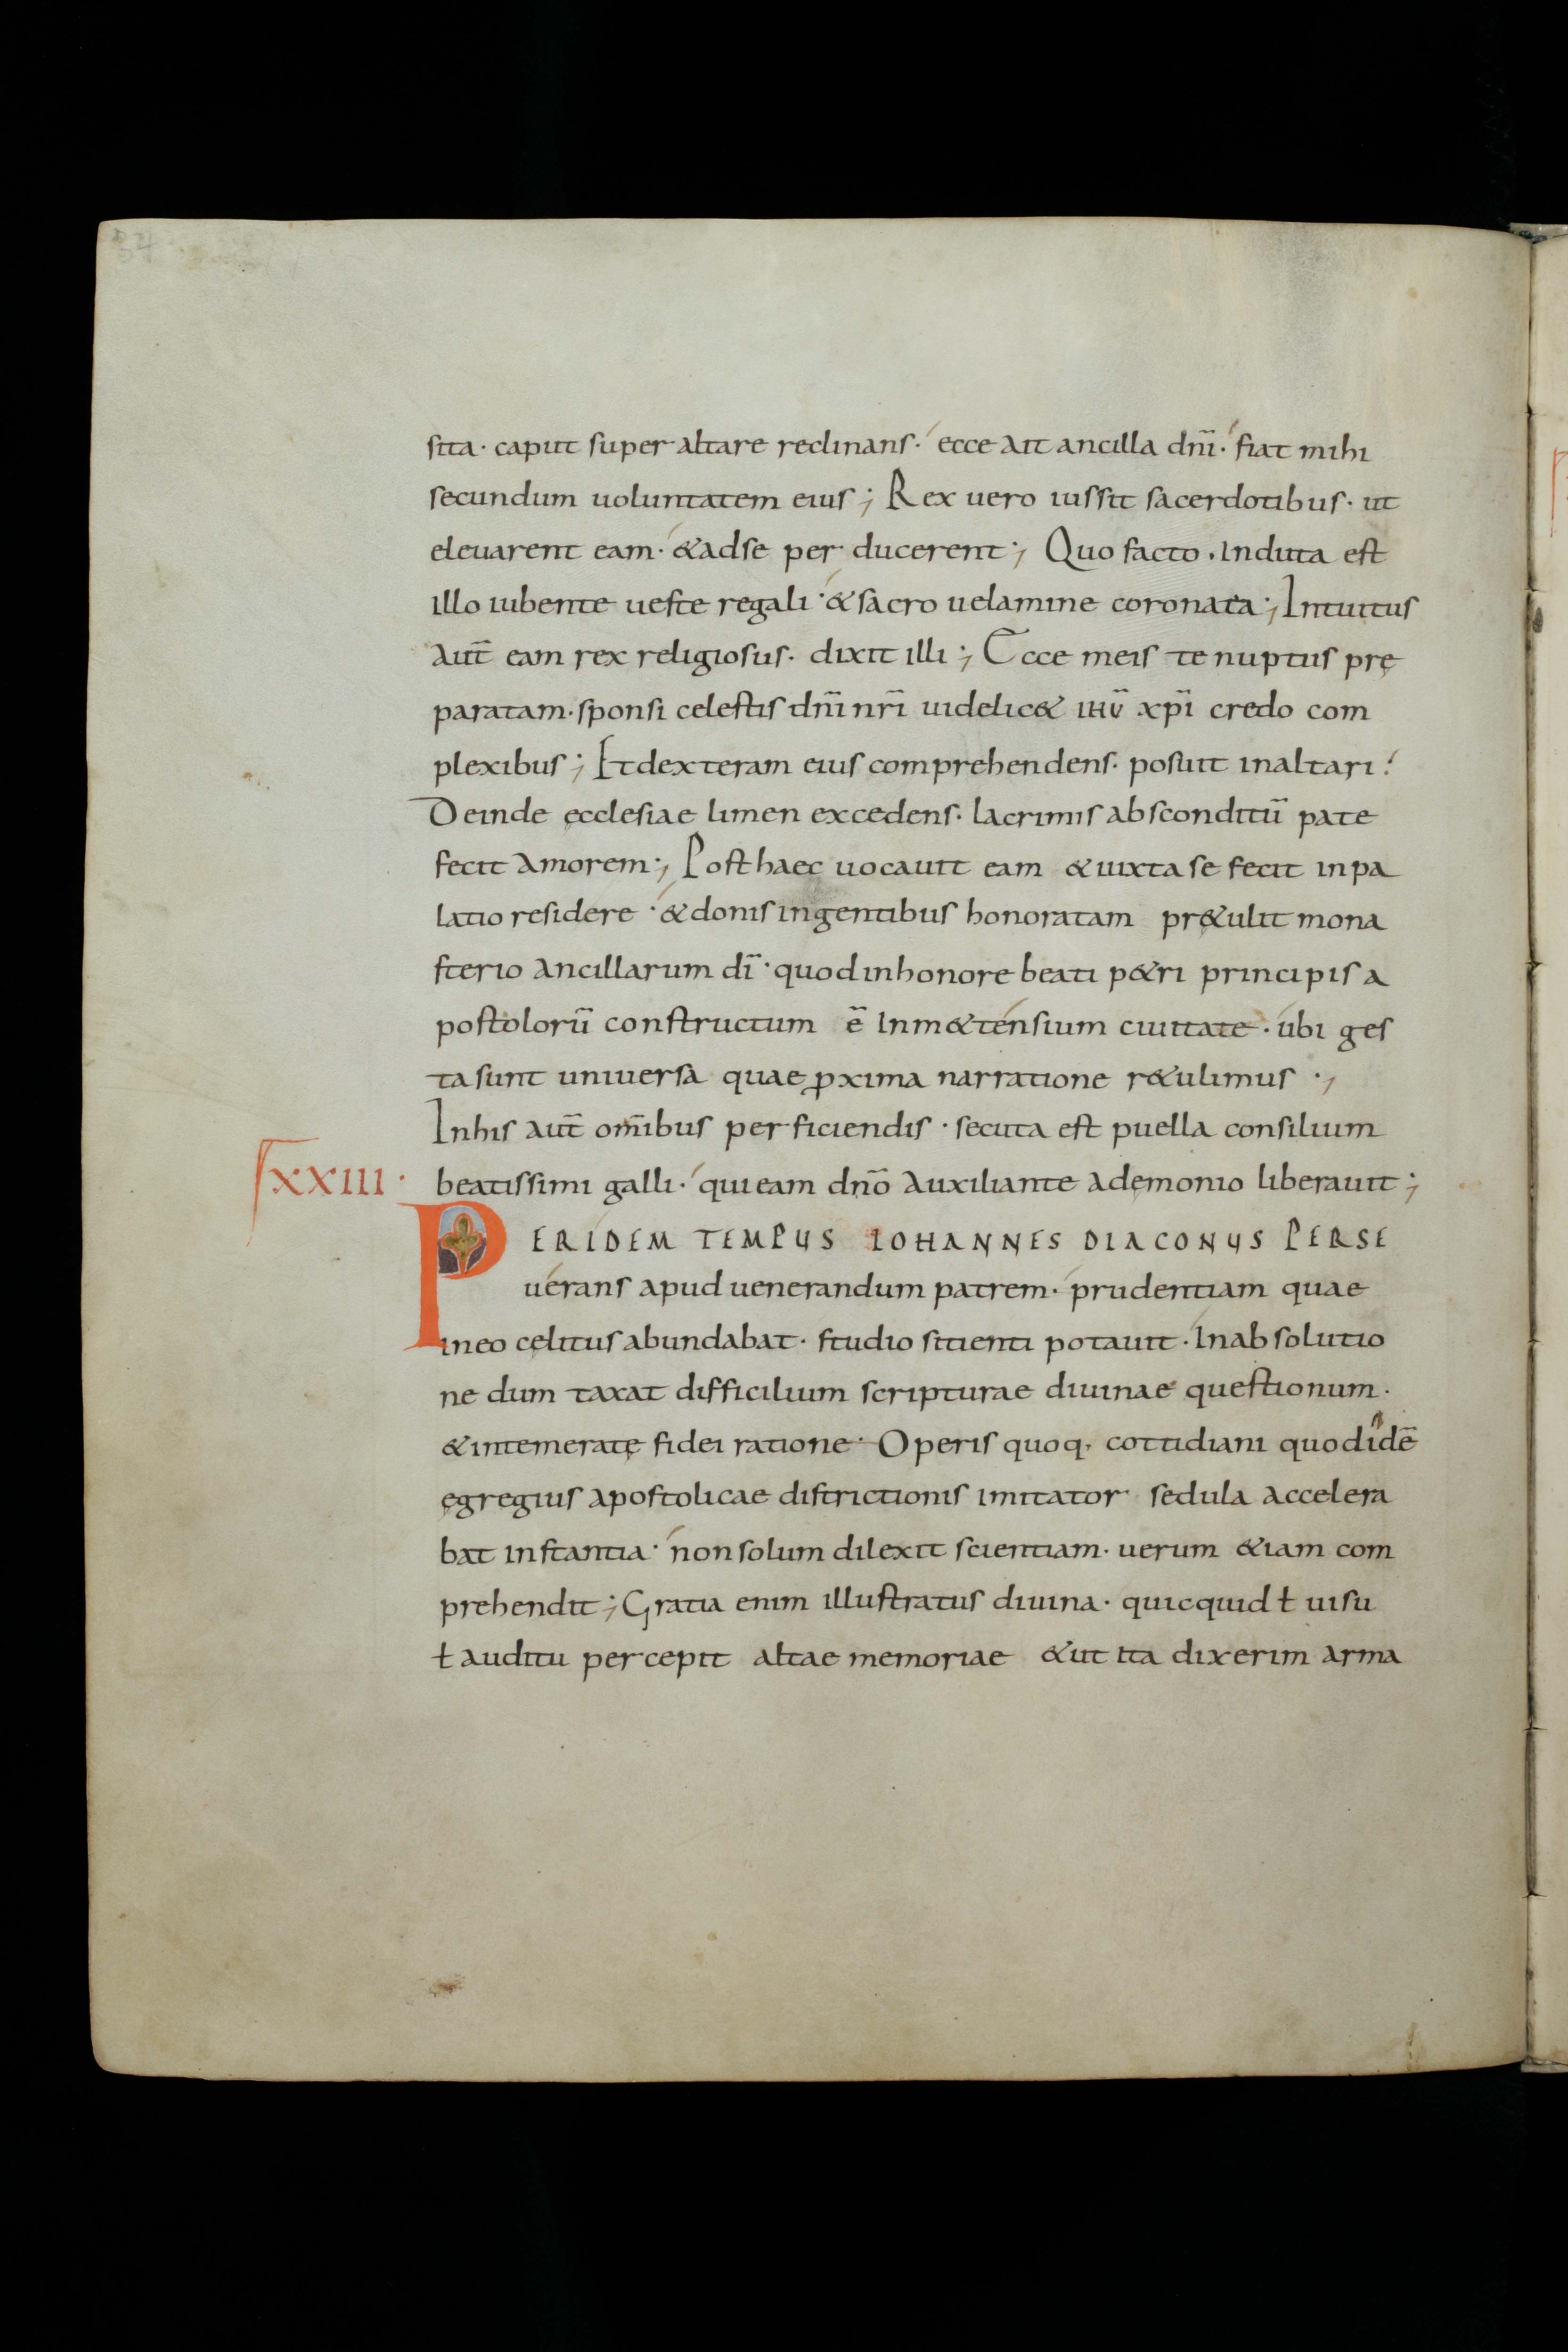 34
sita· caput super altare reclinans· ecce ait ancilla dnī· fiat mihi
secundum uoluntatem eius; Rex uero iussit sacerdotibus· ut
eleuarent eam· &adse per ducerent; Quo facto· Induta est
illo iubente ueste regali· &sacro uelamine coronata; Intuitus
aut̄ eam rex religiosus· dixit illi; Ecce meis te nuptiis prę
paratam· sponsi celestis dnī nrī uidelic& ihū xpī credo com
plexibus; Etdexteram eius comprehendens· posuit inaltari!
Deinde ęcclesiae limen excedens· lacrimis absconditū pate
fecit amorem; Posthaec uocauit eam &iuxta se fecit inpa
latio residere· &donis ingentibus honoratam pr&ulit mona
sterio ancillarum dī· quodinhonore beati p&ri principis a
postolorū constructum ē Inm&tensium ciuitate· ubi ges
ta sunt uniuersa quae ꝓxima narratione r&ulimus·,
Inhis aut̄ om̄ibus perficiendis· secuta est puella consilium
XXIII·
beatissimi galli· quieam dnō auxiliante ademonio liberauit;
PERIDEM TEMPUS IOHANNES DIACONUS PERSE
uerans apud uenerandum patrem· prudentiam quae
ineo cęlitus abundabat· studio sitienti potauit· Inabsolutio
ne dum taxat difficilium scripturae diuinae questionum·
&intemeratę fidei ratione· Operis quoq, cottidiani quodidē
ęgregius apostolicae districtionis imitator sedula accelera
bat instantia· nonsolum dilexit scientiam· uerum &iam com
prehendit; Gratia enim illustratus diuina· quicquid ł uisu
ł auditu percepit altae memoriae &ut ita dixerim arma